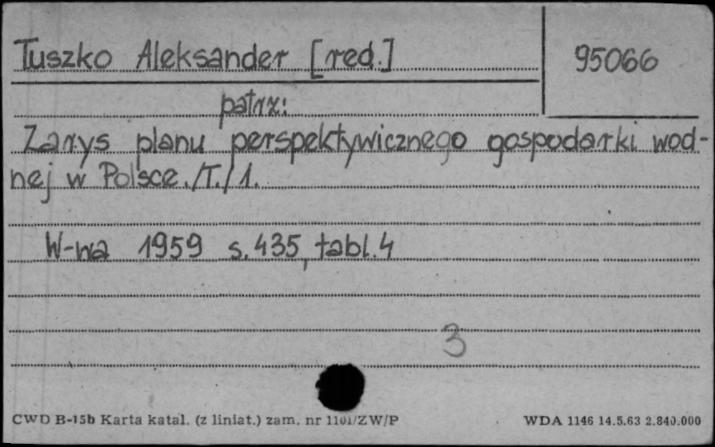 Tuszko Aleksander [red.]
95066
patrz:
Zarys planu perspektywicznego gospodarki wod-
nej w Polsce./T./1.
W-wa 1959 s.435, tabl.4
3
CWD B-15b Karta katal. (z liniat.) zam. nr 1101/ZW/P
WDA 1146 14.5.63 2.840.000